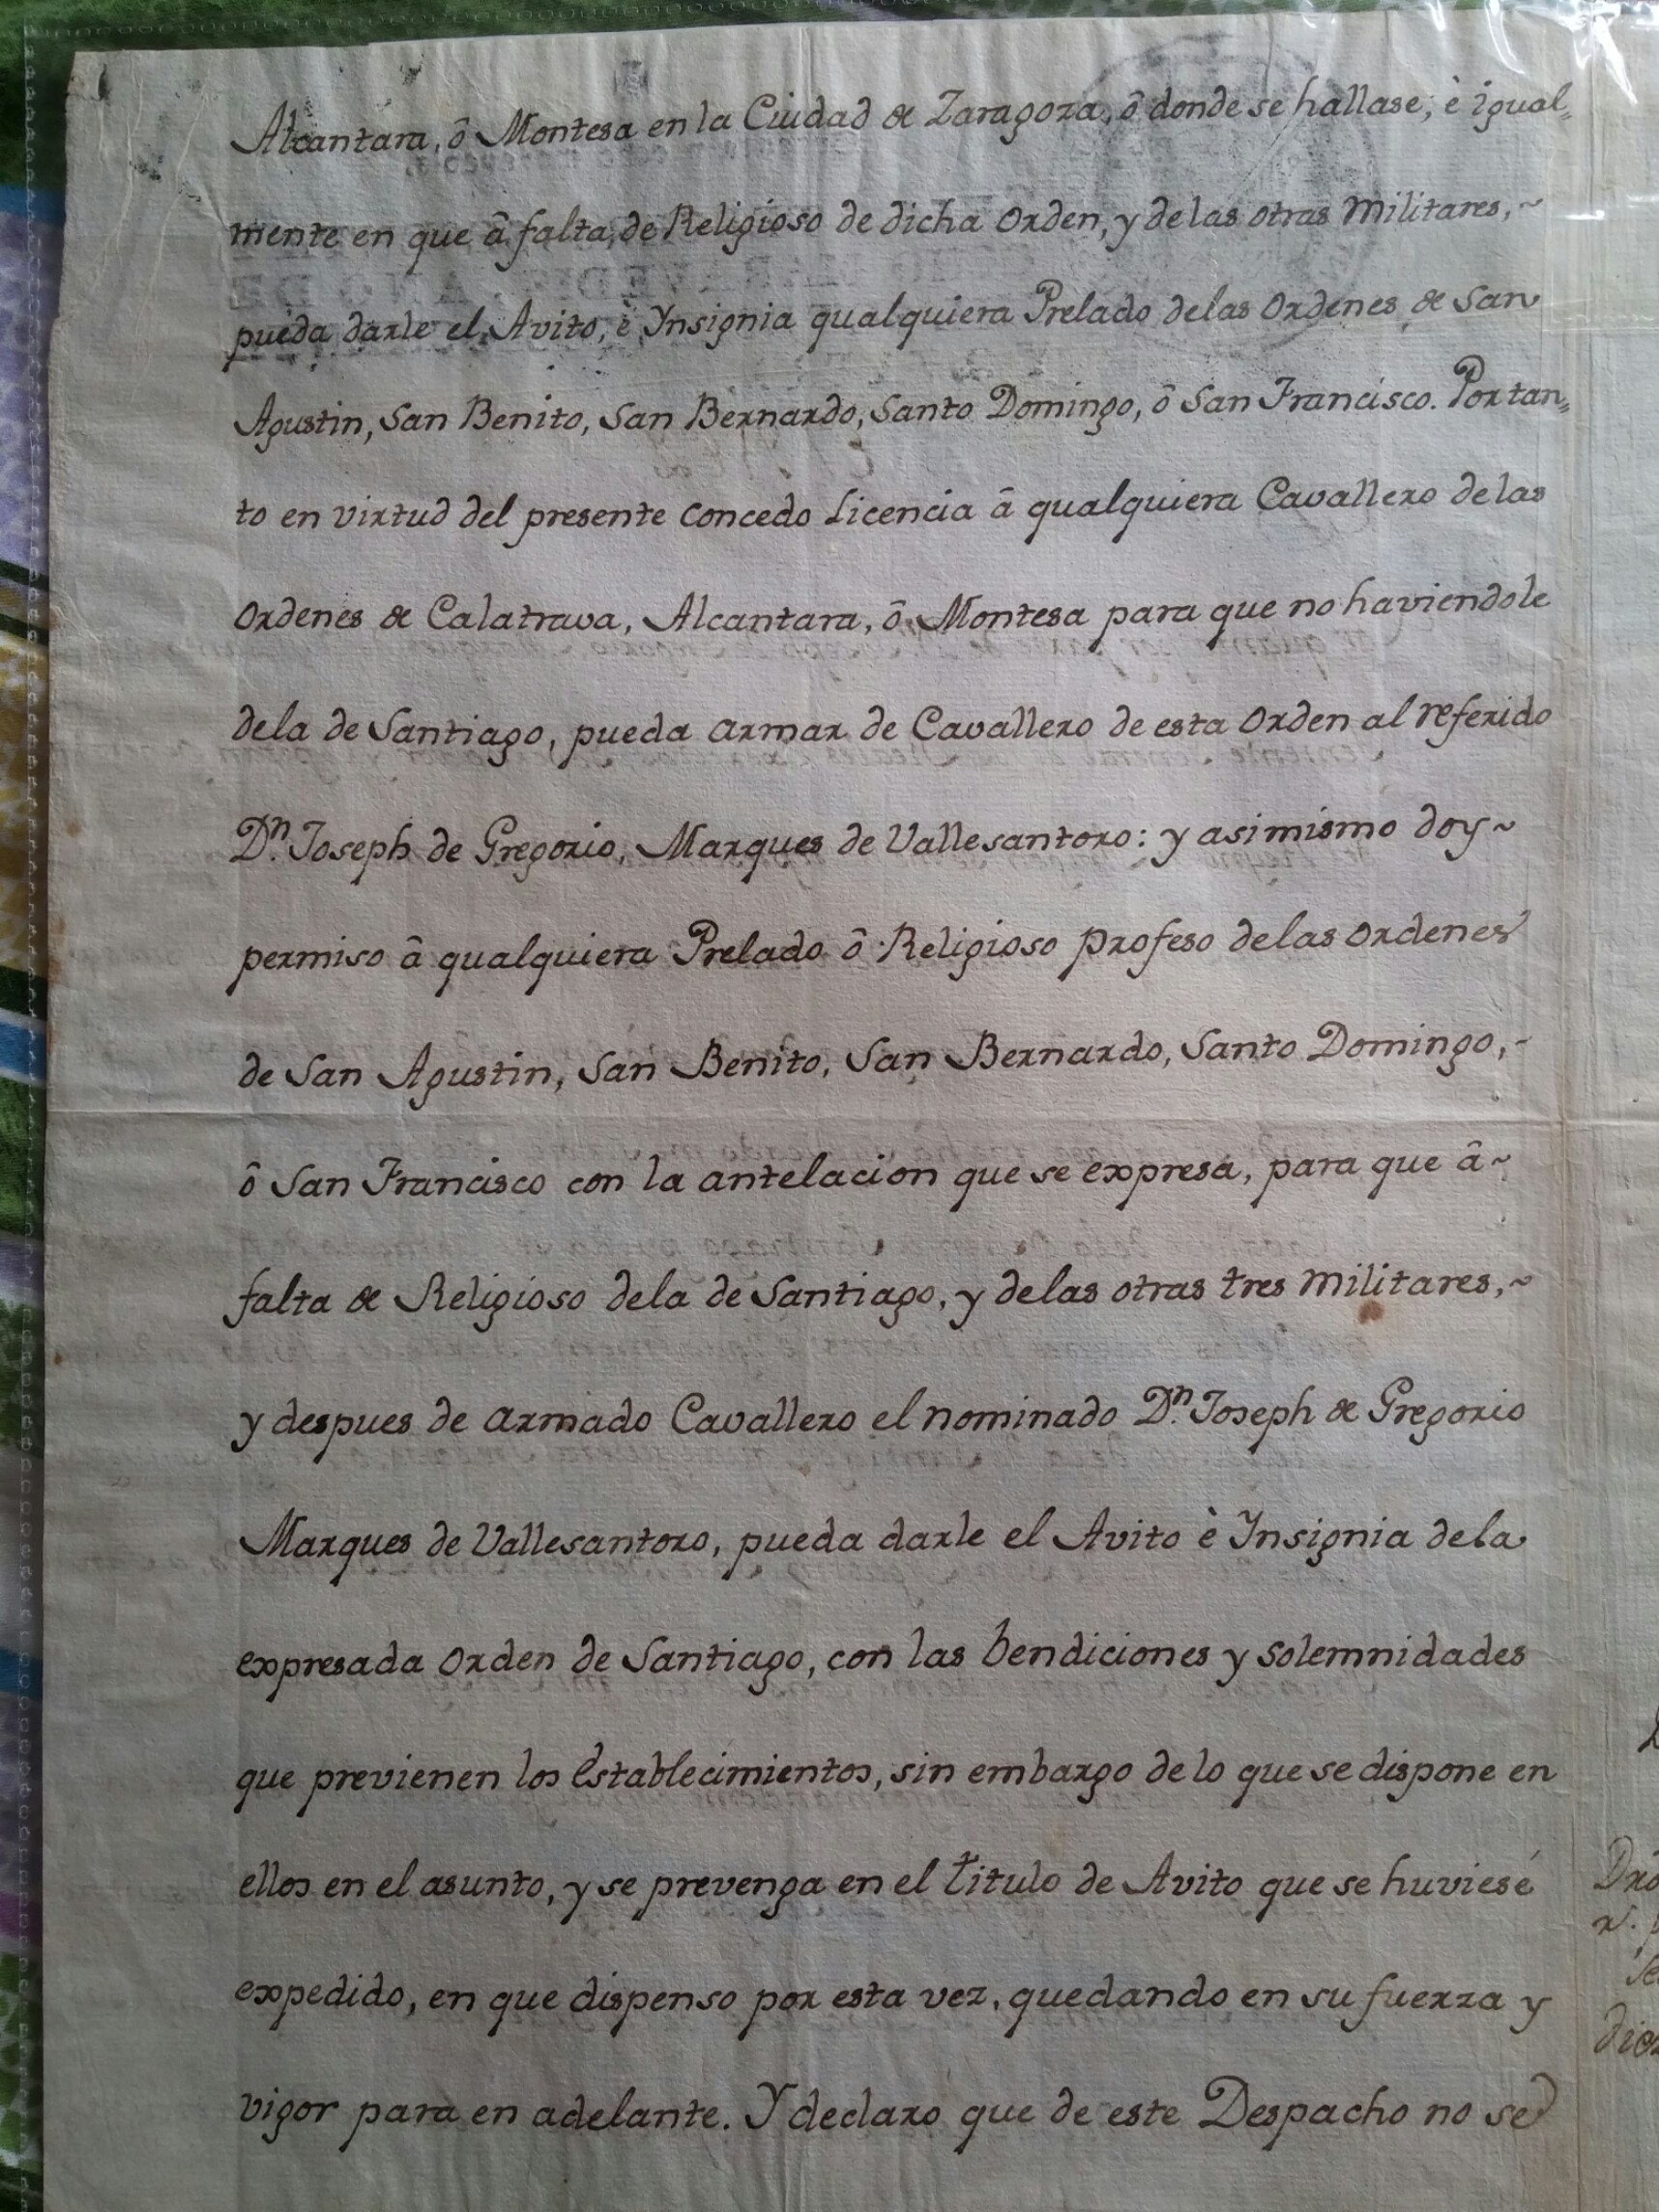 Alcantara, ô Montesa en la Ciudad de Zaragoza, ô donde se hallase, è igual=
mente en que â falta, de Religioso de dicha Orden, y delas otras Militares, ~
pueda darle el Avito, è Ynsignia qualquiera Prelado delas Ordenes de San
Agustin, San Benito, San Bernardo, Santo Domingo, ô San Francisco. Portan=
to en virtud del presente concedo Licencia â qualquiera Cavallero delas
Ordenes de Calatrava, Alcantara, ô Montesa para que no haviendole
dela de Santiago, pueda armar de Cavallero de esta Orden al referido
Dn. Joseph de Gregorio, Marques de Vallesantoro: y asimismo doy ~
permiso â qualquiera Prelado ô Religioso Profeso delas Ordenes
de San Agustin, San Benito, San Bernardo, Santo Domingo, -
ô San Francisco con la antelacion que se expresa, para que â ~
falta de Religioso dela de Santiago, y delas otras tres Militares, ~
y despues de armado Cavallero el nominado Dn. Joseph de Gregorio
Marques de Vallesantoro, pueda darle el Avito è Ynsignia dela
expresada Orden de Santiago, con las bendiciones y solemnidades
que previenen los Establecimientos, sin embargo de lo que se dispone en
ellos en el asunto, y se prevenga en el titulo de Avito que se huviese
expedido, en que dispenso por esta vez, quedando en su fuerza y
vigor para en adelante. Y declaro que de este Despacho no se